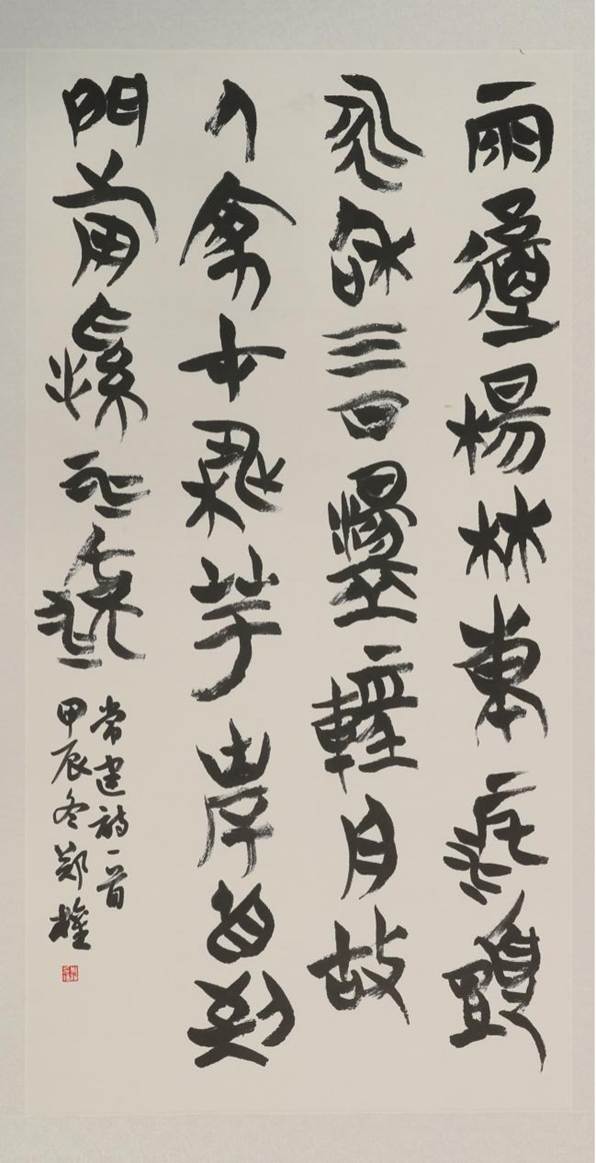 雨歇楊林東渡頭
永和三日盪輕舟故
人家在桃花岸直到
門前溪水流
常建詩一首
甲辰冬鄭權